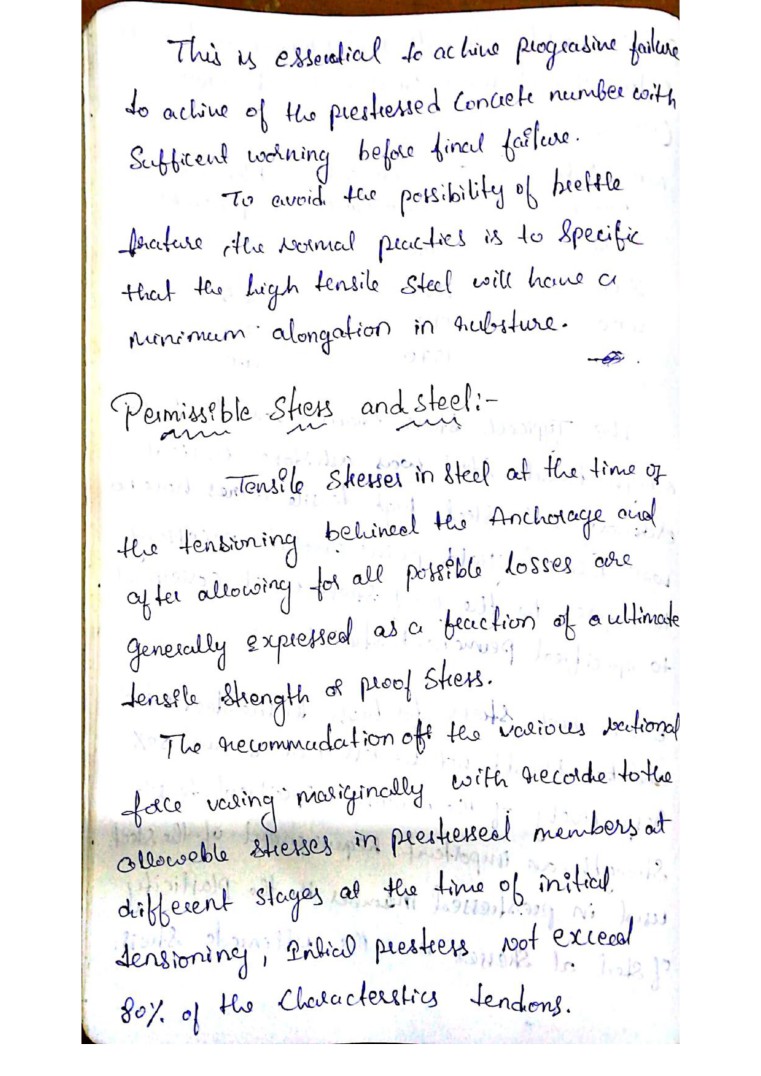 This is essential to achive progressive failure
to achive of the prestressed Concrete number with
Sufficent worning before final failure.
To avoid the possibility of brettle
frature, the normal practies is to Specific
that the high tensile Steel will have a
minimum alongation in rubsture.
Permissible Stress and steel:-
Tensile Stresses in Steel at the time of
the tensioning behined the Anchorage and
after allowing for all possible losses are
Generally expressed as a fraction of a ultimate
tensile Strength or proof Stress.
The recommudation off the various national
face varing mariginally with recorde to the
allowable stresses in prestressed members at
different stages at the time of initial
tensioning, Initial prestress Not exceed
80% of the Characterstics tendons.